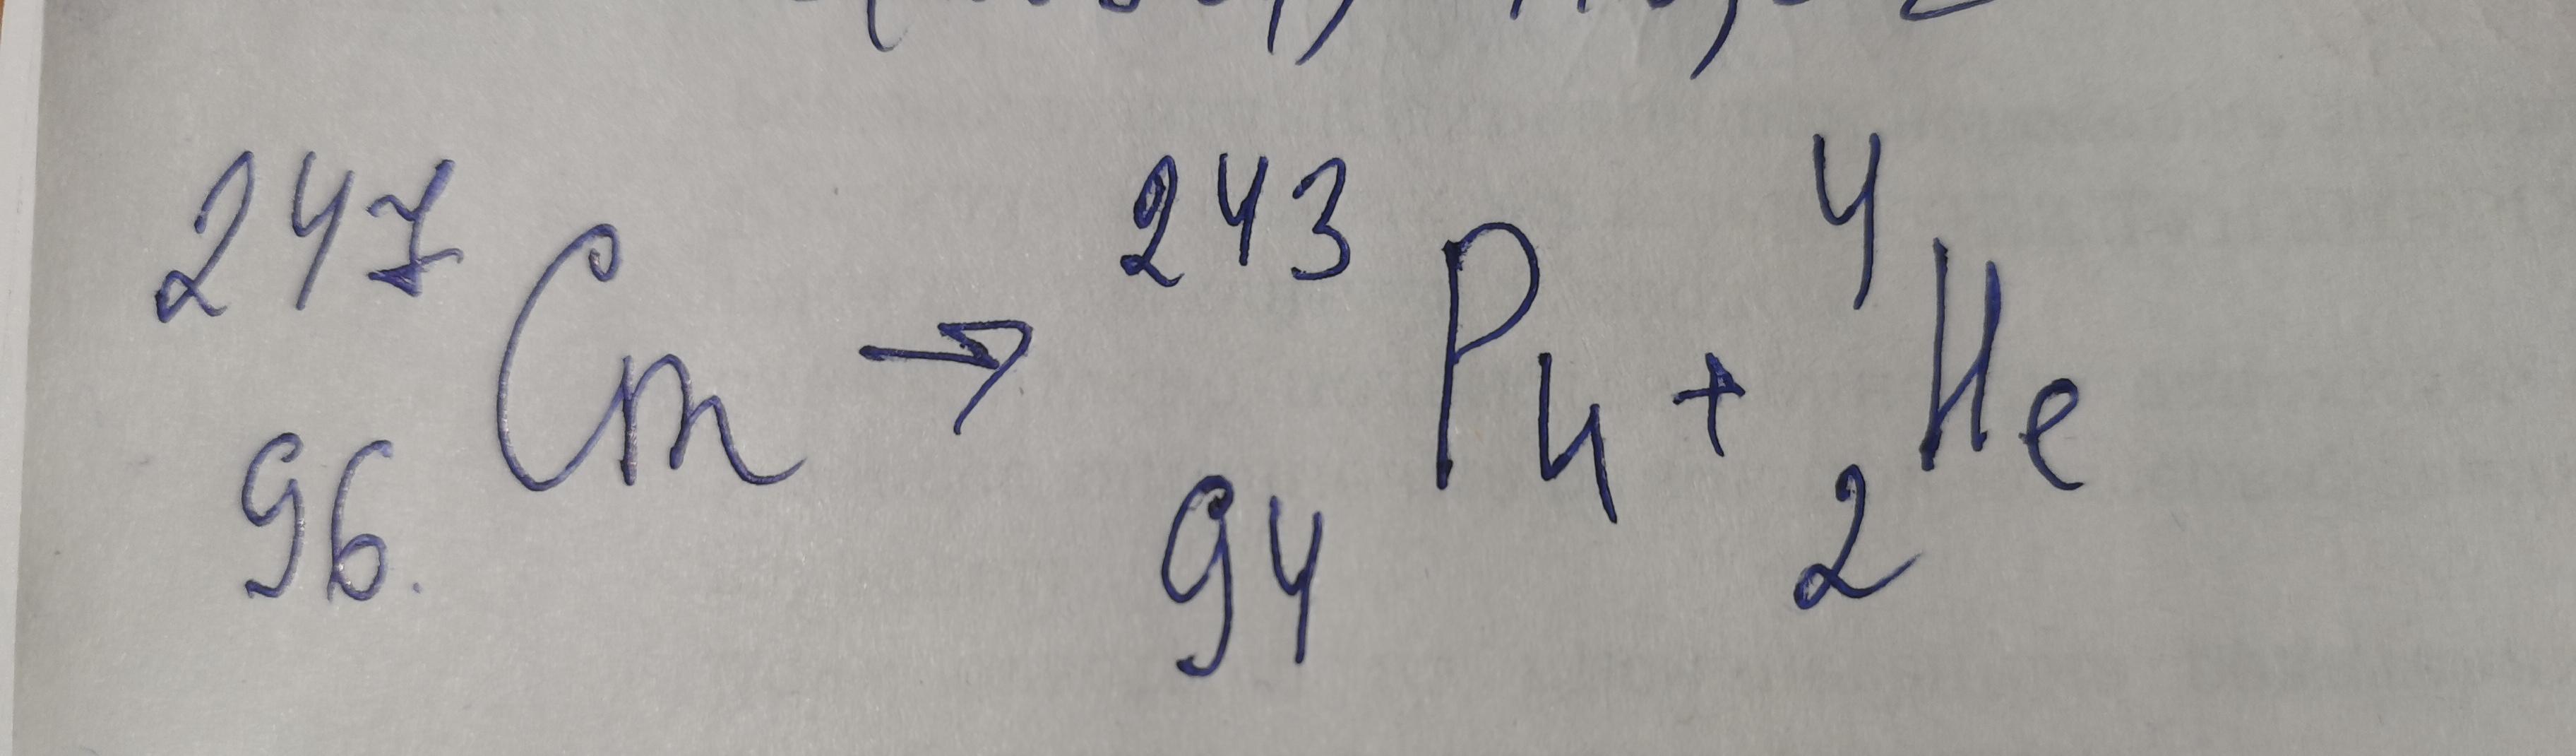 ²⁴⁷₉₆Cm → ²⁴³₉₄Pu + ⁴₂He